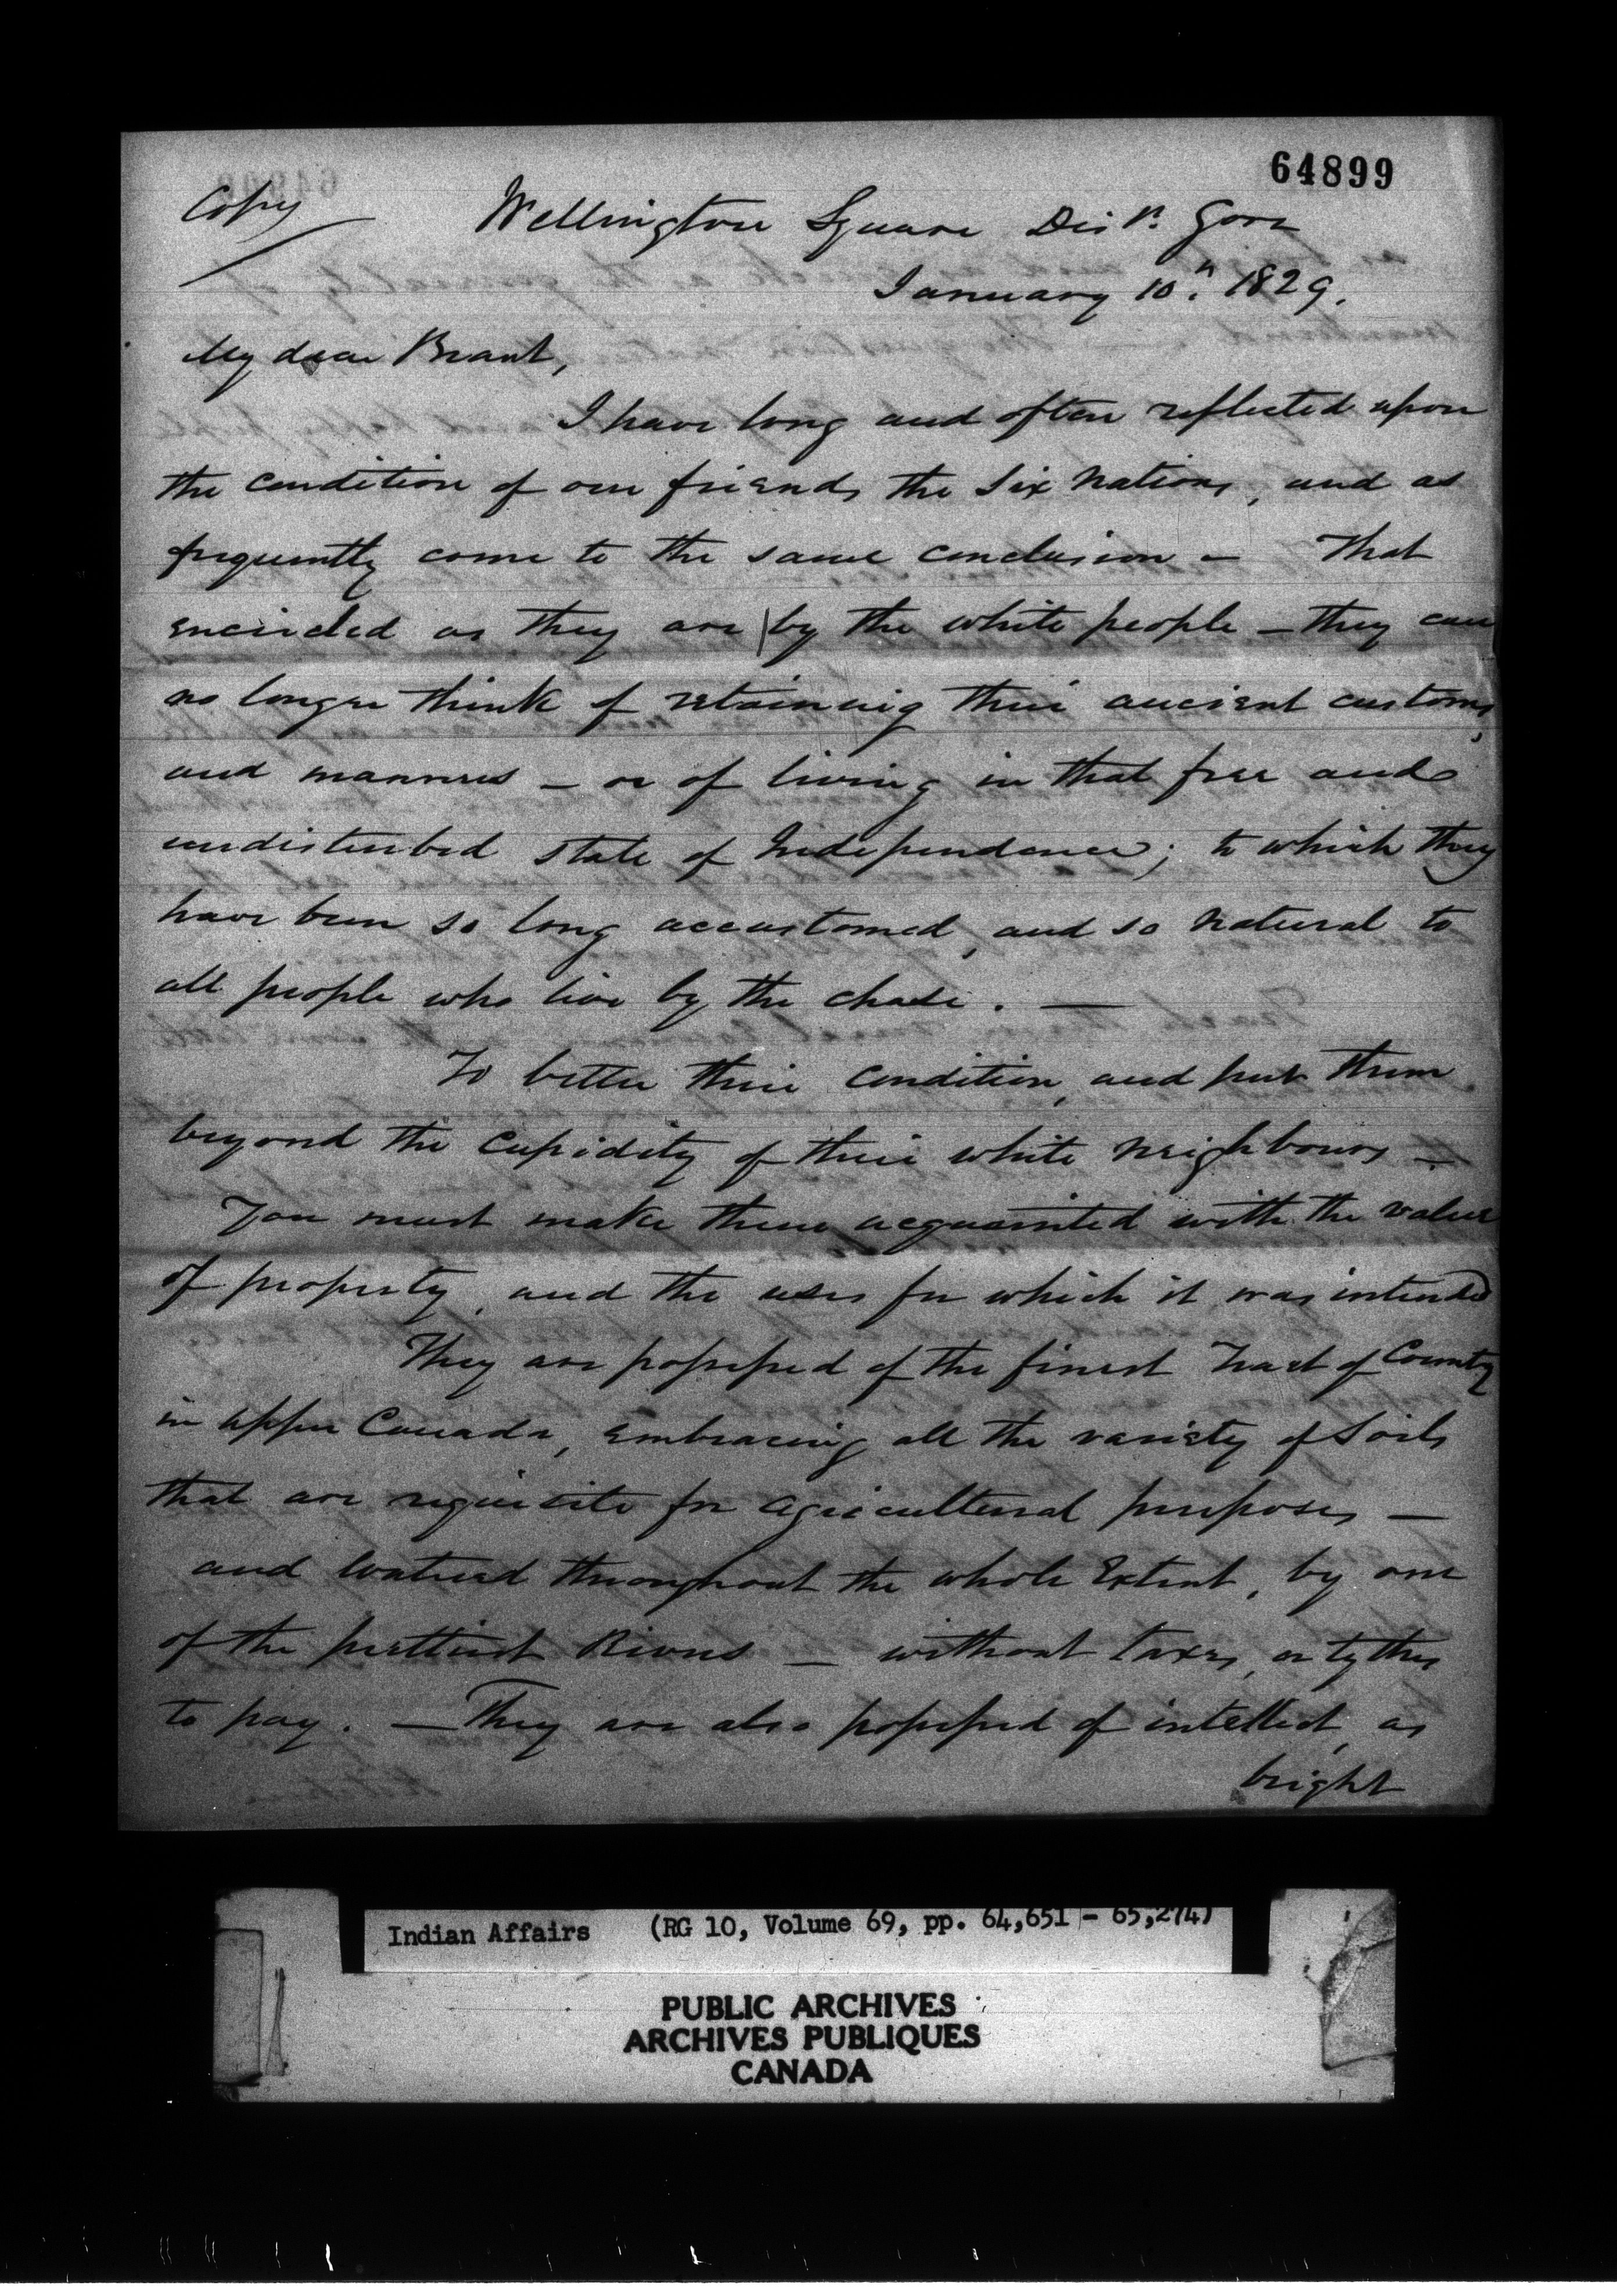 64899
Copy
Wellington Square Disr. Gore
January 10th. 1829.
My dear Brant,
I have long and often reflected upon
the condition of our friends the Six Nations, and as
frequently come to the same conclusion - That
encircled as they are by the white people - they can
no longer think of retaining their ancient customs,
and manners - or of living in that free and
undisturbed state of Independence; to which they
have been so long accustomed, and so natural to
all people who live by the chase. —
To better their condition, and put them
beyond the cupidity of their white neighbours -
You must make them acquainted with the value
of property, and the uses for which it was intended
They are possessed of the finest Tract of County
in upper Canada, embracing all the variety of Soils
that are requisite for agricultural purposes —
and watered throughout the whole Extent, by one
of the prettiest Rivers — without taxes, or tythes
to pay. — They are also possessed of intellect, as
bright
Indian Affairs (RG 10, Volume 69, pp. 64,651 - 65,274)
PUBLIC ARCHIVES
ARCHIVES PUBLIQUES
CANADA